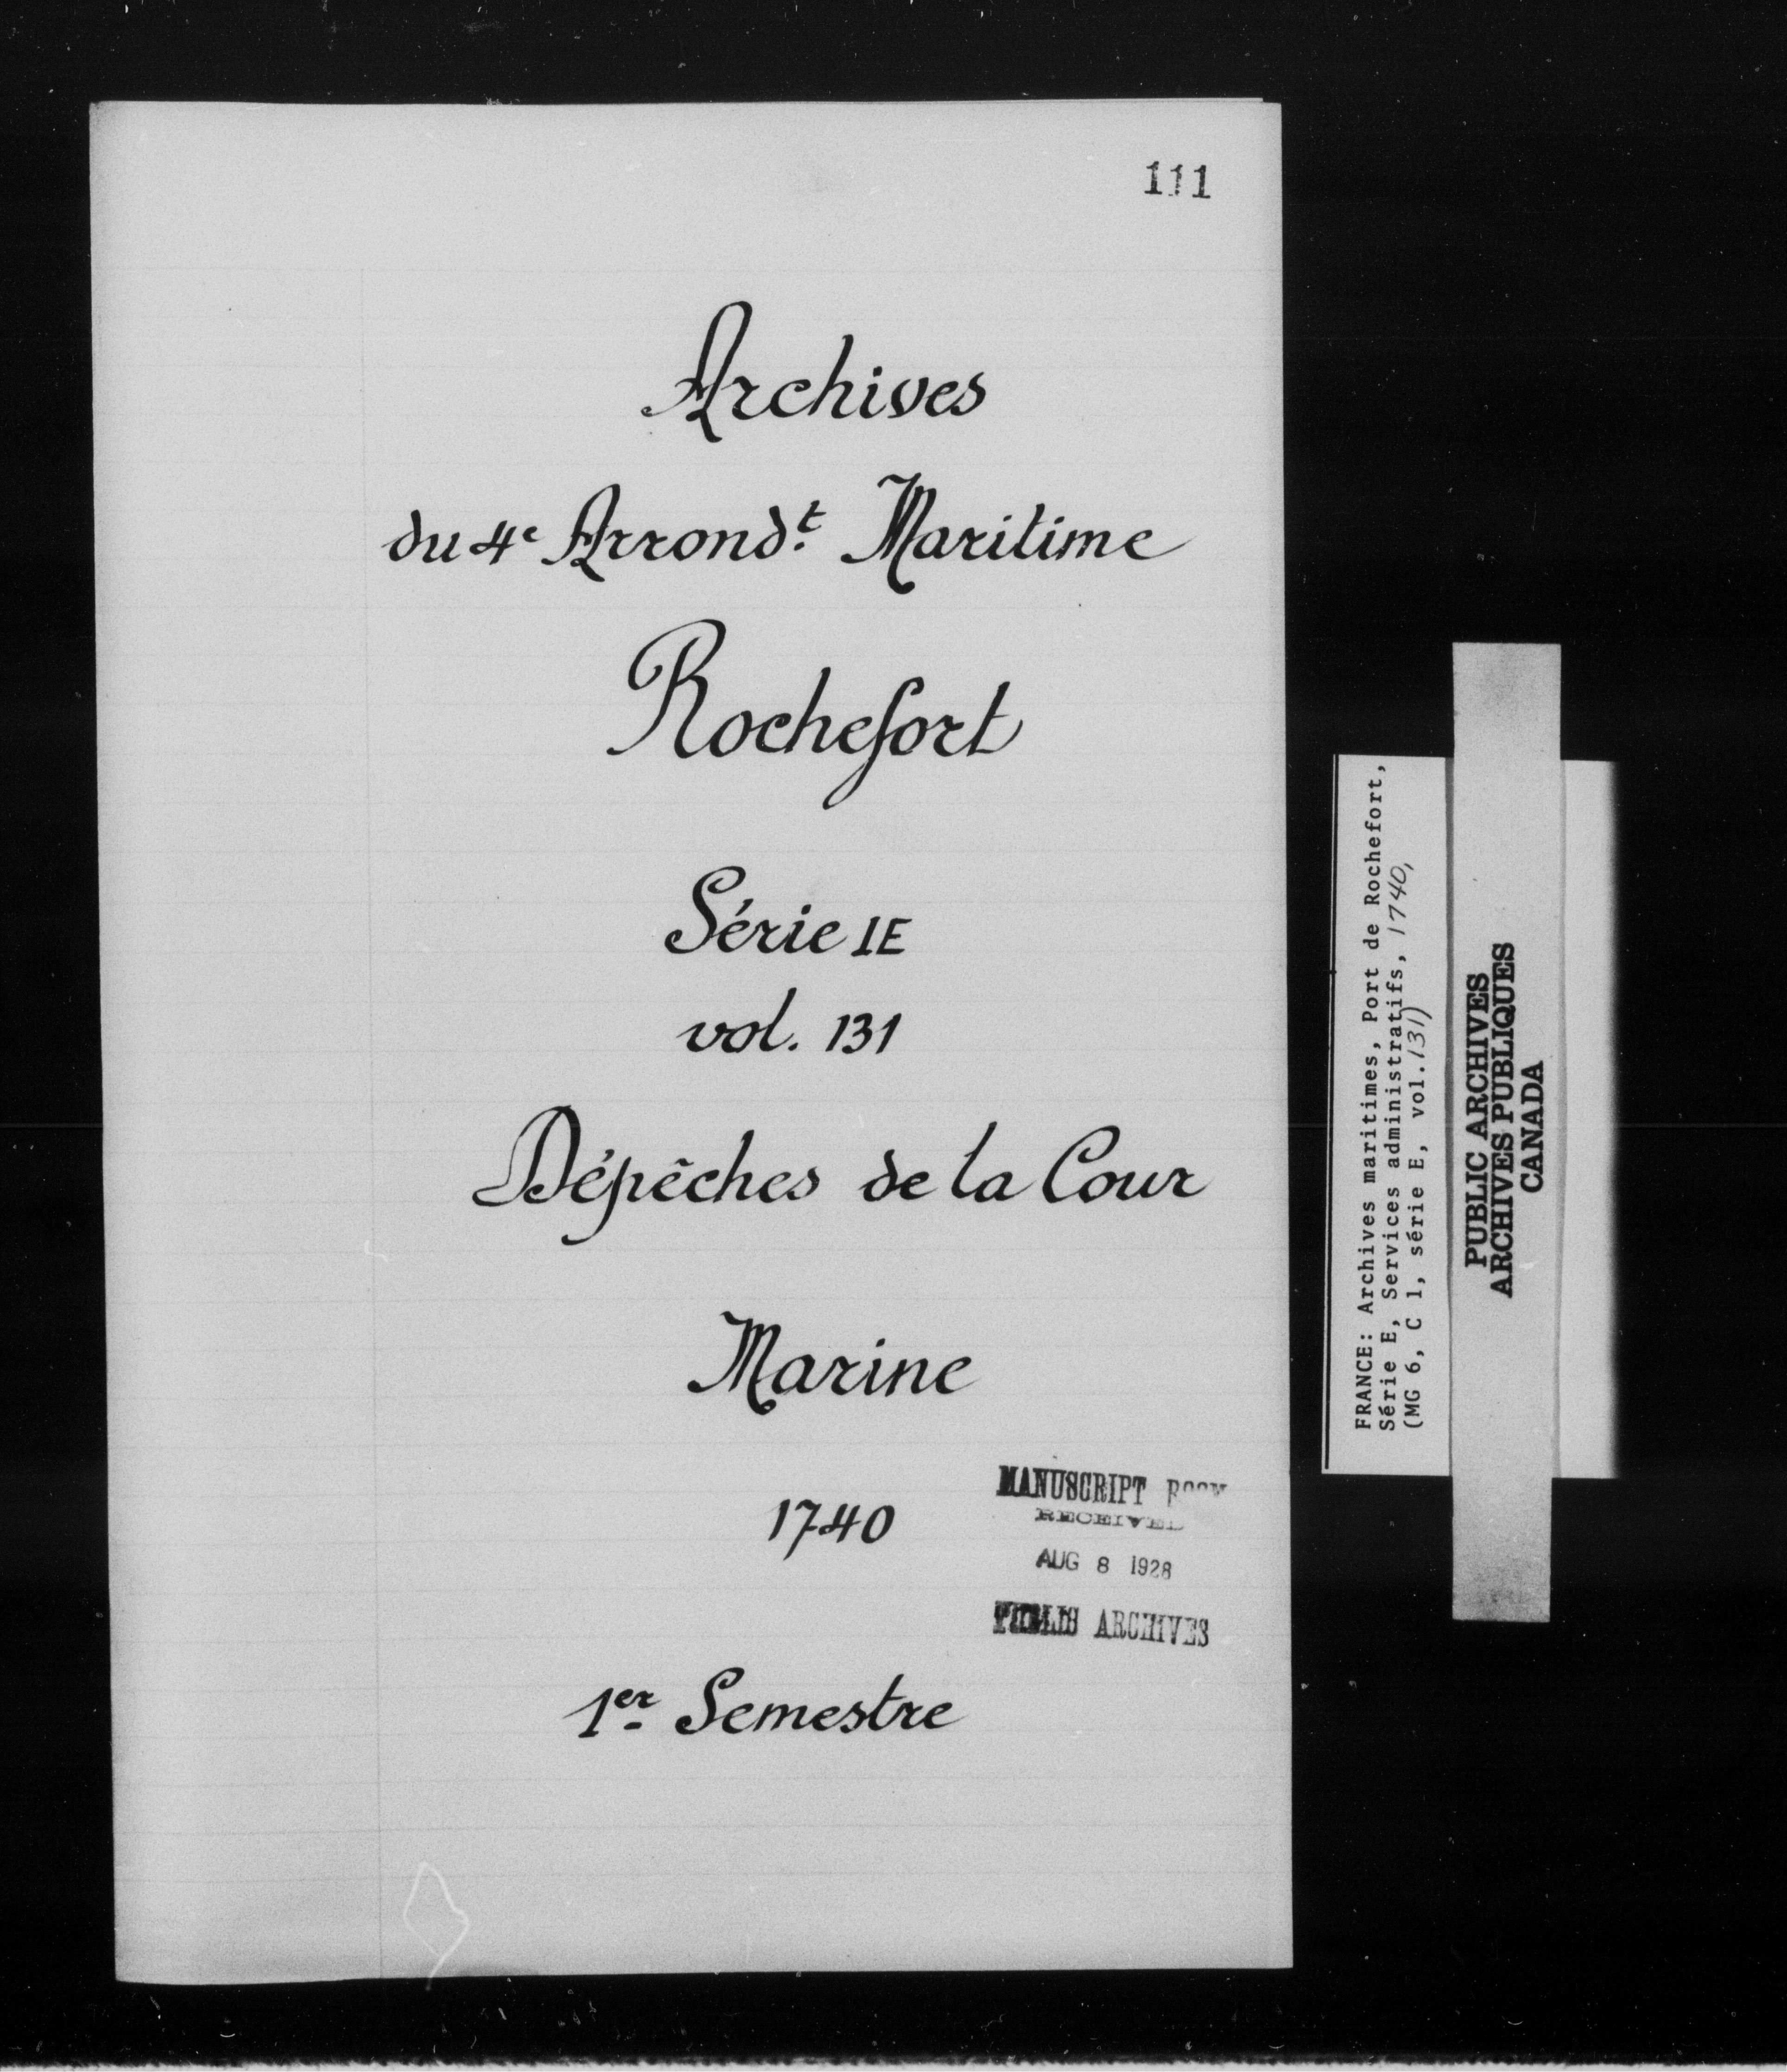 111
Archives
du 4e Arrondt. Maritime
Rochefort
Série 1E
vol. 131
Dépêches de la Cour
Marine
1740
MANUSCRIPT ROOM
RECEIVED
AUG 8 1928
PUBLIC ARCHIVES
1er Semestre
FRANCE: Archives maritimes, Port de Rochefort,
Série E, Services administratifs, 1740,
(MG 6, C 1, série E, vol.131)
PUBLIC ARCHIVES
ARCHIVES PUBLIQUES
CANADA